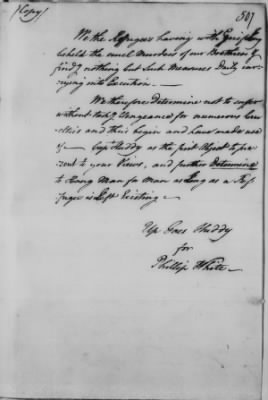 (Copy)
507
We the Refugees having with Grief Long
beheld the cruel Murders of our Brethren &
finding nothing but Such Measures Daily car-
rying into Execution —
We therefore Determine not to suffer
without taking Vengeance for numerous Cru-
elties and thus begin and have made use
of Capt Huddy as the first Object to pre-
sent to your Views, and further Determine
to Hang Man for Man as Long as a Re-
fugee is Left Existing —
Up Goes Huddy
for
Phillip White —